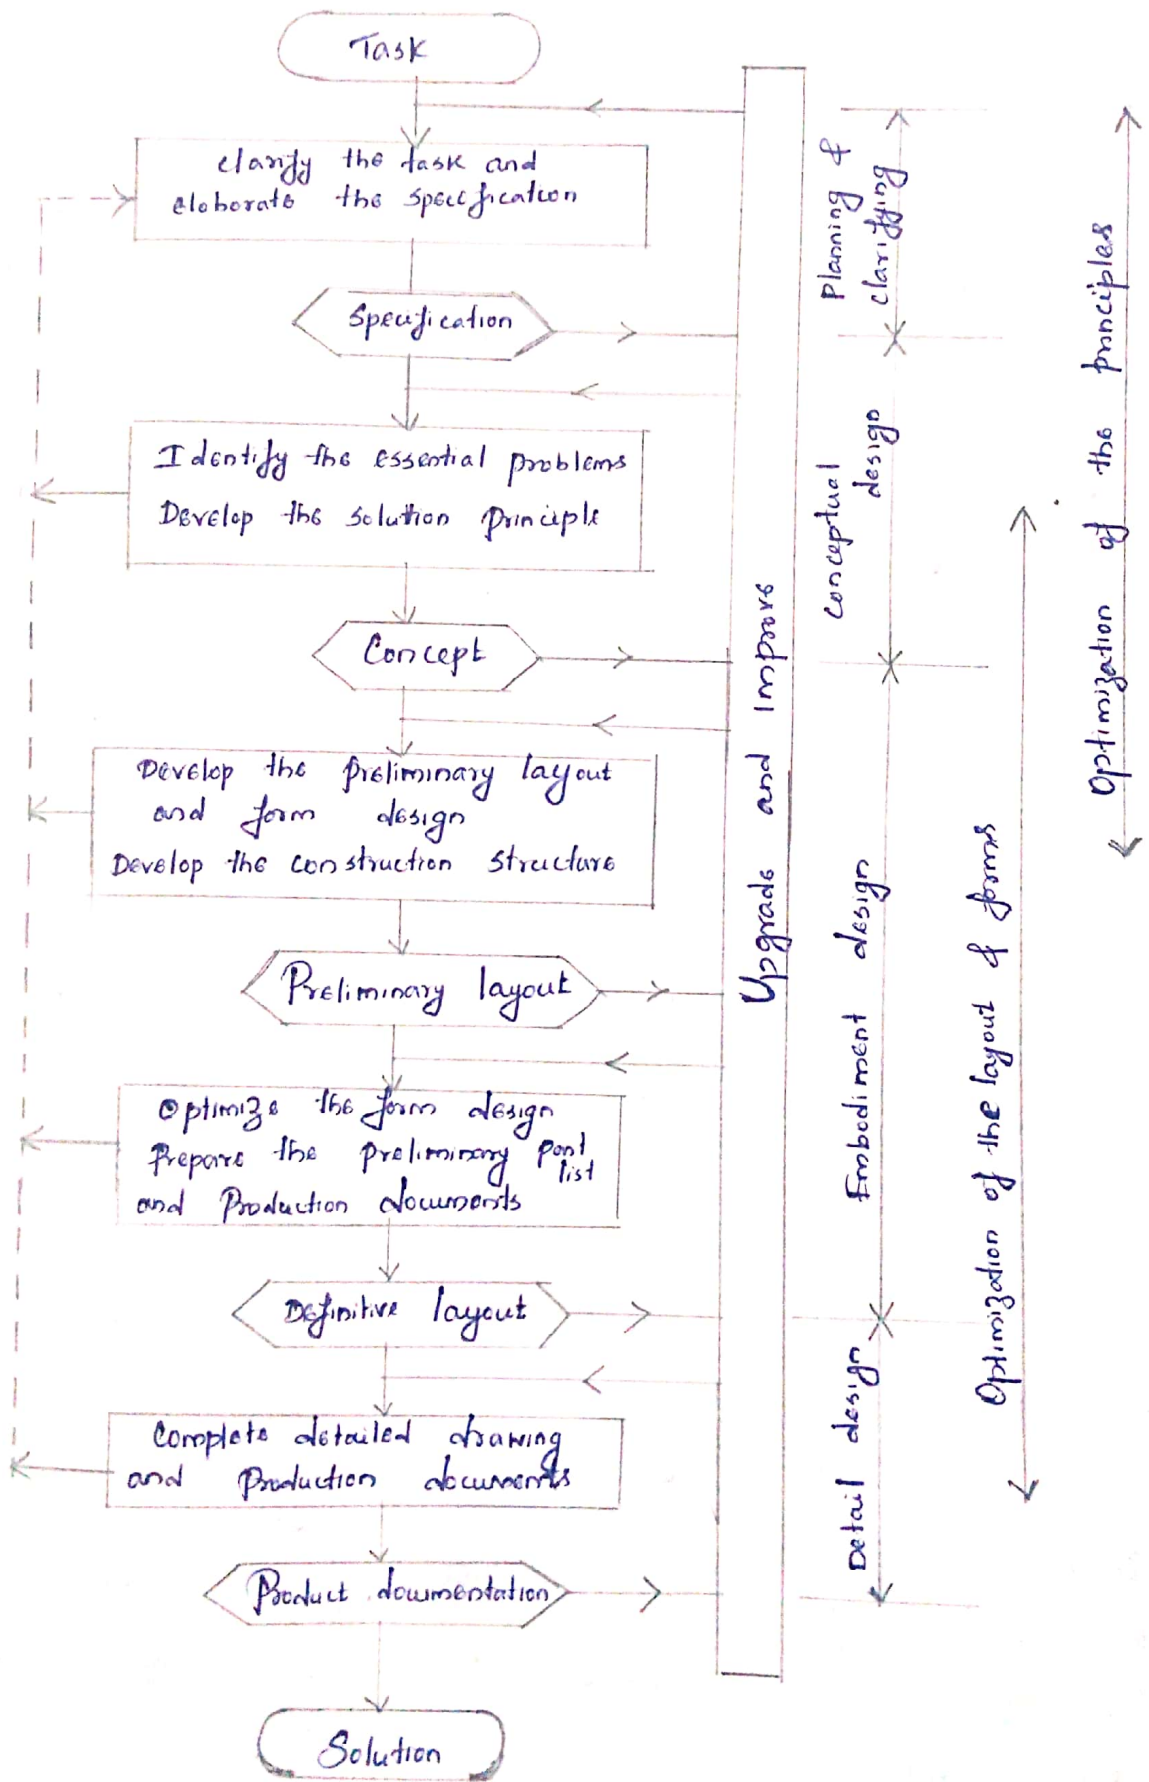 Task
clarify the task and
eloborate the specification
Specification
Identify the essential problems
Develop the solution principle
Concept
Develop the preliminary layout
and form design
Develop the construction structure
Preliminary layout
Optimize the form design
Prepare the preliminary part
list
and Production documents
Definitive layout
Complete detailed drawing
and Production documents
Product documentation
Solution
Upgrade and Improve
Planning &
clarifying
Conceptual
design
Embodiment design
Detail design
Optimization of the layout & forms
Optimization of the principles